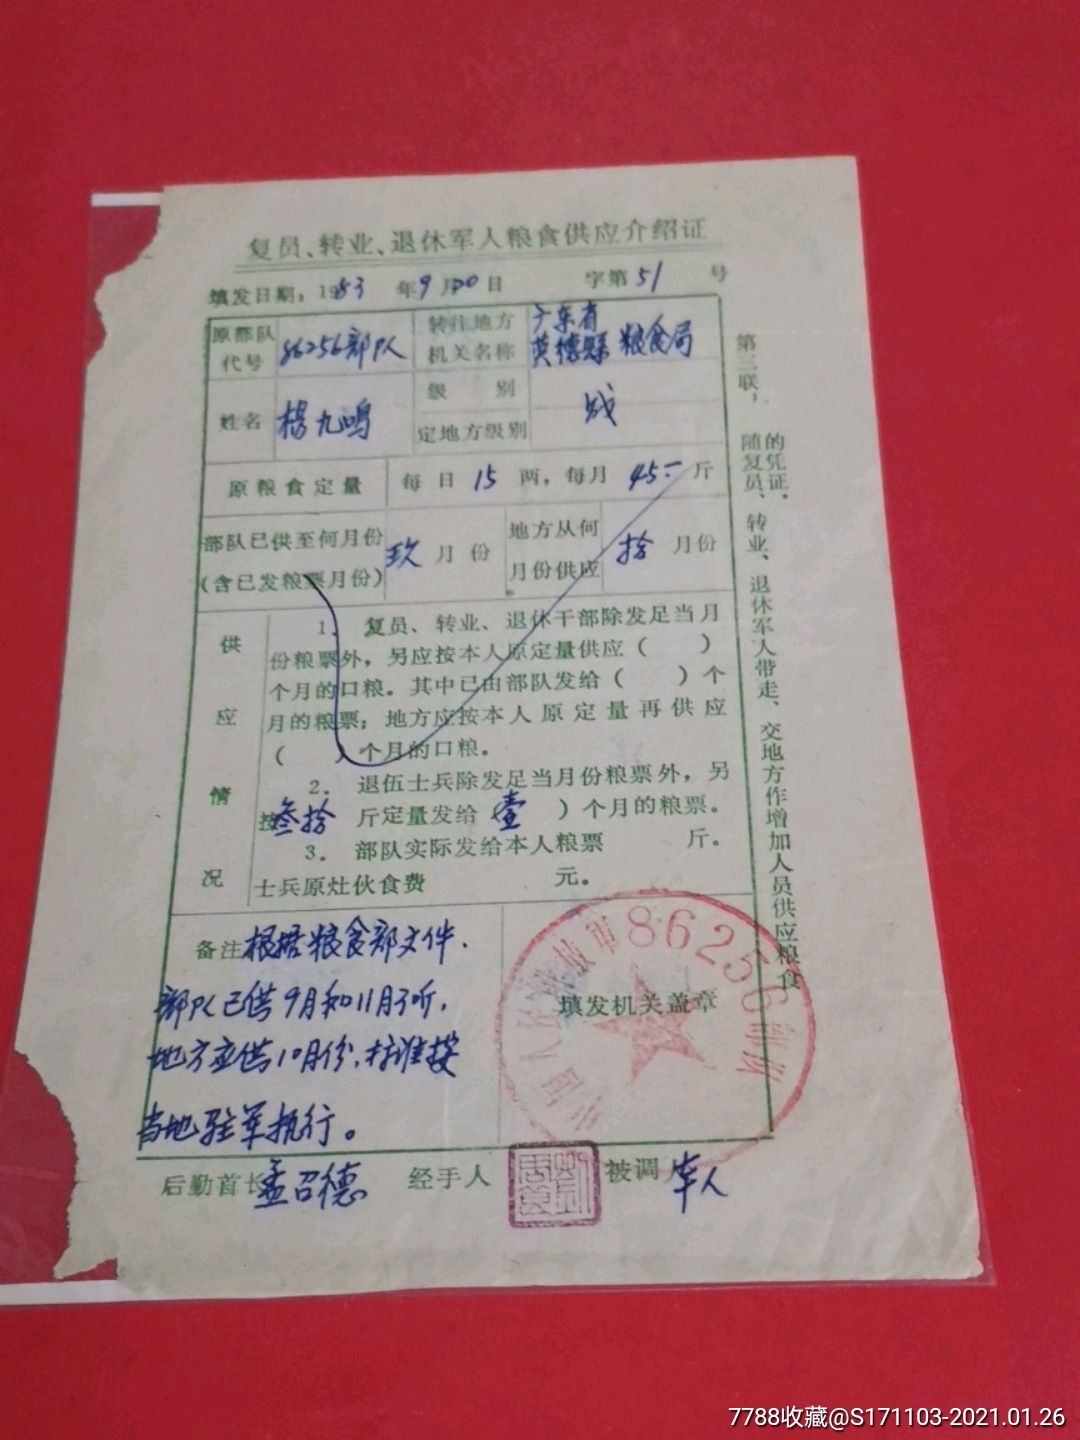 复员、转业、退休军人粮食供应介绍证
填发日期：1983 年9月20日 字第51 号
原部队代号 86256部队 转往地方机关名称 广东省英德县粮食局
姓名 杨九鸣 级别 战
定地方级别
原粮食定量 每日15两，每月45.-斤
部队已供至何月份 玖月份 地方从何 拾月份
（含已发粮票月份） 月份供应
供应情况
1. 复员、转业、退休干部除发足当月
份粮票外，另应按本人原定量供应（ ）
个月的口粮。其中已由部队发给（ ）个
月的粮票；地方应按本人原定量再供应
（ ）个月的口粮。
2. 退伍士兵除发足当月份粮票外，另
按叁拾斤定量发给壹）个月的粮票。
3. 部队实际发给本人粮票 斤。
士兵原灶伙食费 元。
备注 根据粮食部文件.
部队已供9月和11月
地方应供10月份.标准按
当地驻军执行。
填发机关盖章
中国人民解放军86256部队
后勤首长 孟召德 经手人 被调
第三联，随复员、转业、退休军人带走、交地方作增加人员供应粮食
的凭证。
7788收藏@S171103-2021.01.26